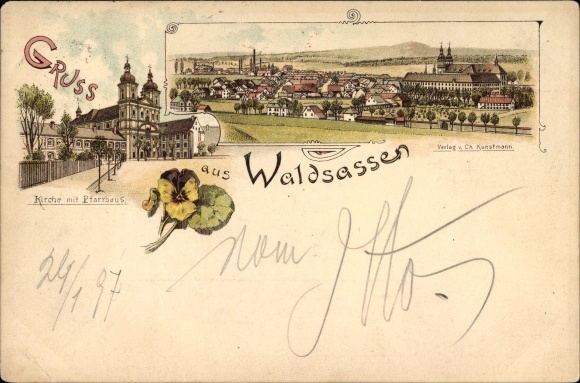 Gruss
aus Waldsassen
Verlag v. Ch. Kunstmann.
Kirche mit Pfarrhaus.
24/1 97